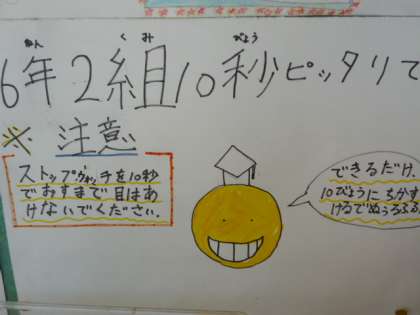 6年2組10秒ピッタリで
ねん くみ びょう
※ 注意
ストップウォッチを10秒
でおすまで目はあ
けないでください。
できるだけ、
10びょうにちかず
けるでぬぅるふふ